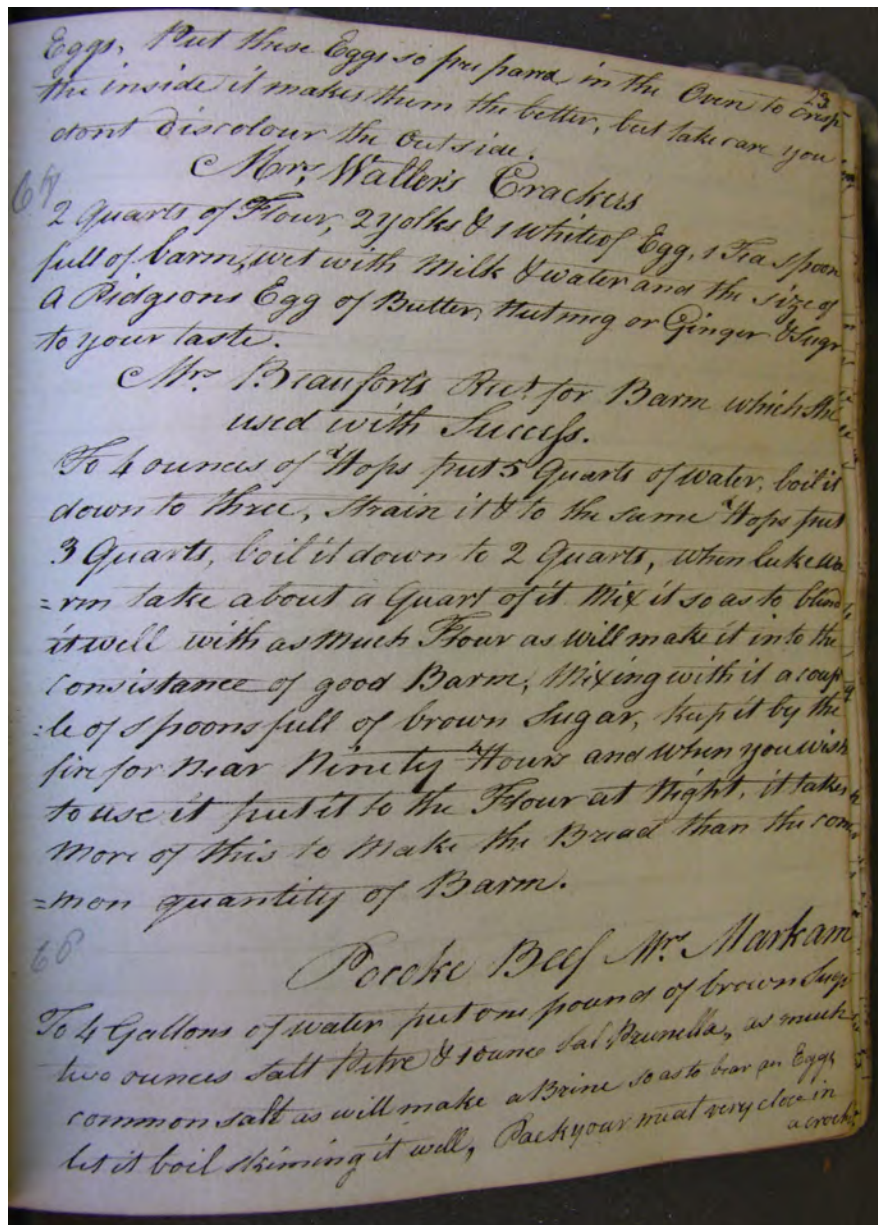 23
Eggs, Put these Eggs so prepard in the Oven to crisp
the inside it makes them the better, but take care you
dont discolour the outside.
64
Mrs. Waller's Crackers
2 Quarts of Flour, 2 yolks & 1 white of Egg, 1 Tea spoon
full of barm, wet with Milk & water and the size of
a Pidgeons Egg of Butter, Nutmeg or Ginger & Sugr
to your taste.
Mrs Beauforts Rect. for Barm which she
used with Success.
To 4 ounces of Hops put 5 Quarts of water, boil it
down to three, strain it & to the same Hops put
3 Quarts, boil it down to 2 Quarts, when luke wa
=rm take about a Quart of it Mix it so as to blend
it well with as Much Flour as will make it into the
Consistance of good Barm, Mixing with it a coup
=le of spoonsfull of brown Sugar, keep it by the
fire for Near Ninety Hours and when you wish
to use it put it to the Flour at Night, it takes
More of this to Make the Bread than the com
=mon quantity of Barm.
66
Beef Mrs. Markam
To 4 Gallons of water put one pound of brown Sugr
two ounces Salt Petre & 1 ounce Sal Prunella, as much
common salt as will make a Brine so as to bear an Egg,
let it boil skiming it well, Pack your meat very close in
a crock.